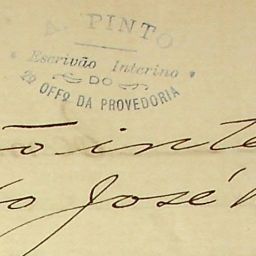 A. PINTO
Escrivão Interino
DO
2º OFFº DA PROVEDORIA
ão inte
do José